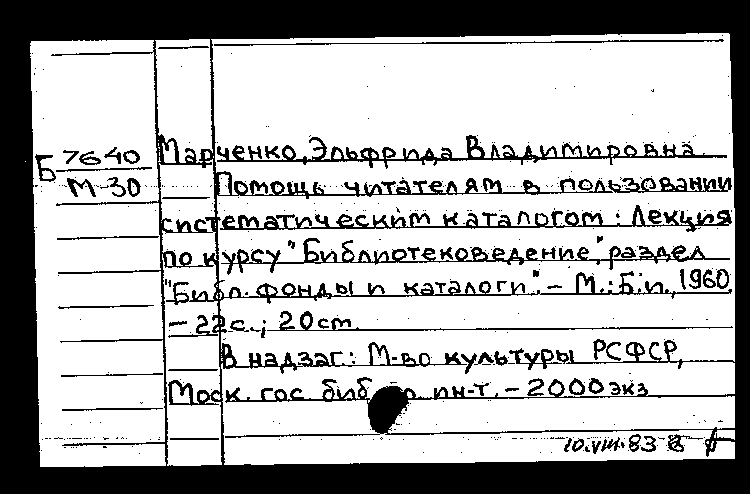 Б 7640 Марченко, Эльфрида Владимировна
М-30 Помощь читателям в пользовании
систематическим каталогом : Лекция
по курсу "Библиотековедение", раздел
"Библ. фонды и каталоги". – М.: Б.и., 1960
– 22с.; 20 см.
В надзаг.: М-во культуры РСФСР,
Моск. гос. ин-т. – 2000 экз
10.VIII.83